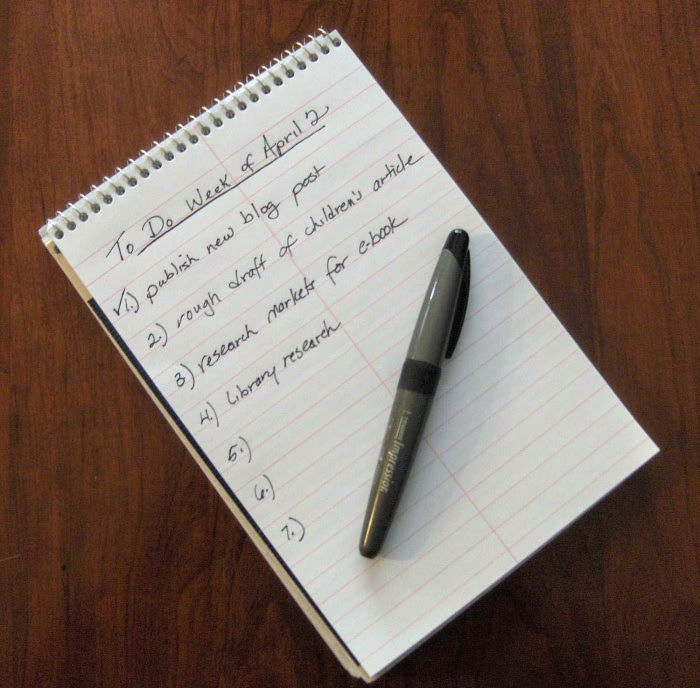 To Do Week of April 2
✓1.) publish new blog post
2) rough draft of children's article
3) research markets for e-book
4.) Library research
5.)
6.)
7.)
Impression